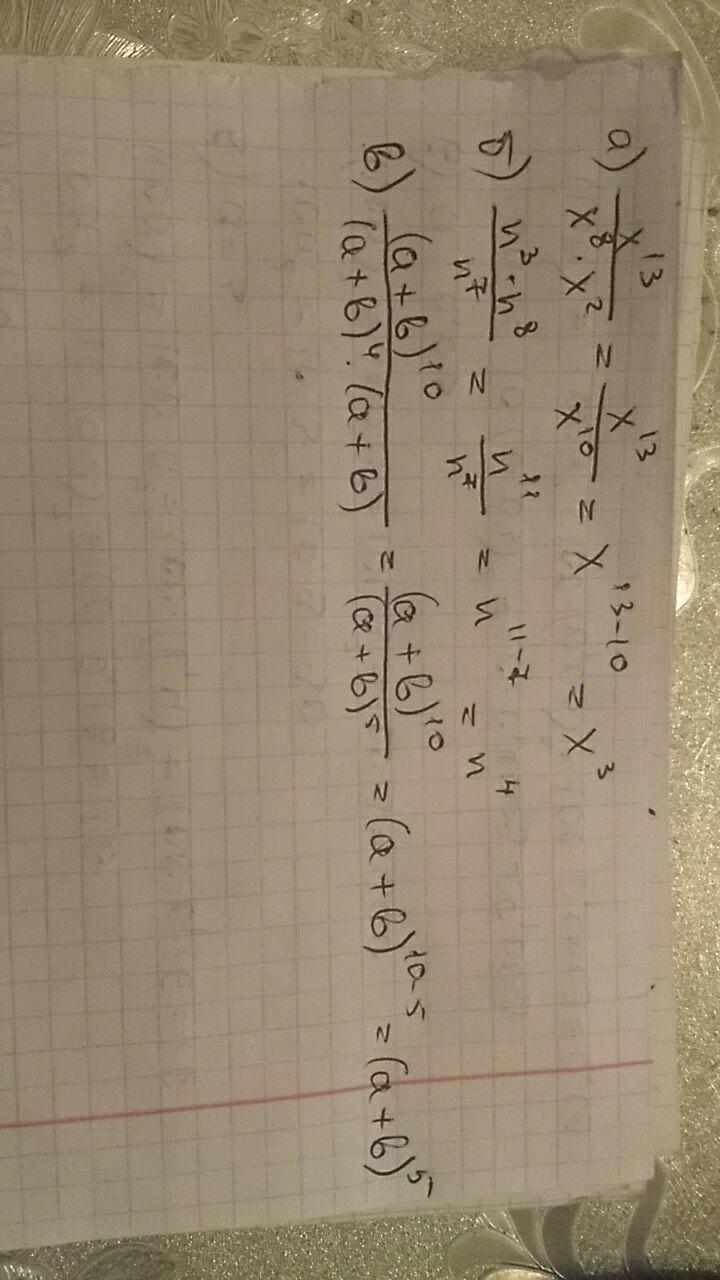 а) x¹³ / (x⁸ · x²) = x¹³ / x¹⁰ = x¹³⁻¹⁰ = x³
б) (n³ · n⁸) / n⁷ = n¹¹ / n⁷ = n¹¹⁻⁷ = n⁴
в) (a + b)¹⁰ / ((a + b)⁴ · (a + b)) = (a + b)¹⁰ / (a + b)⁵ = (a + b)¹⁰⁻⁵ = (a + b)⁵